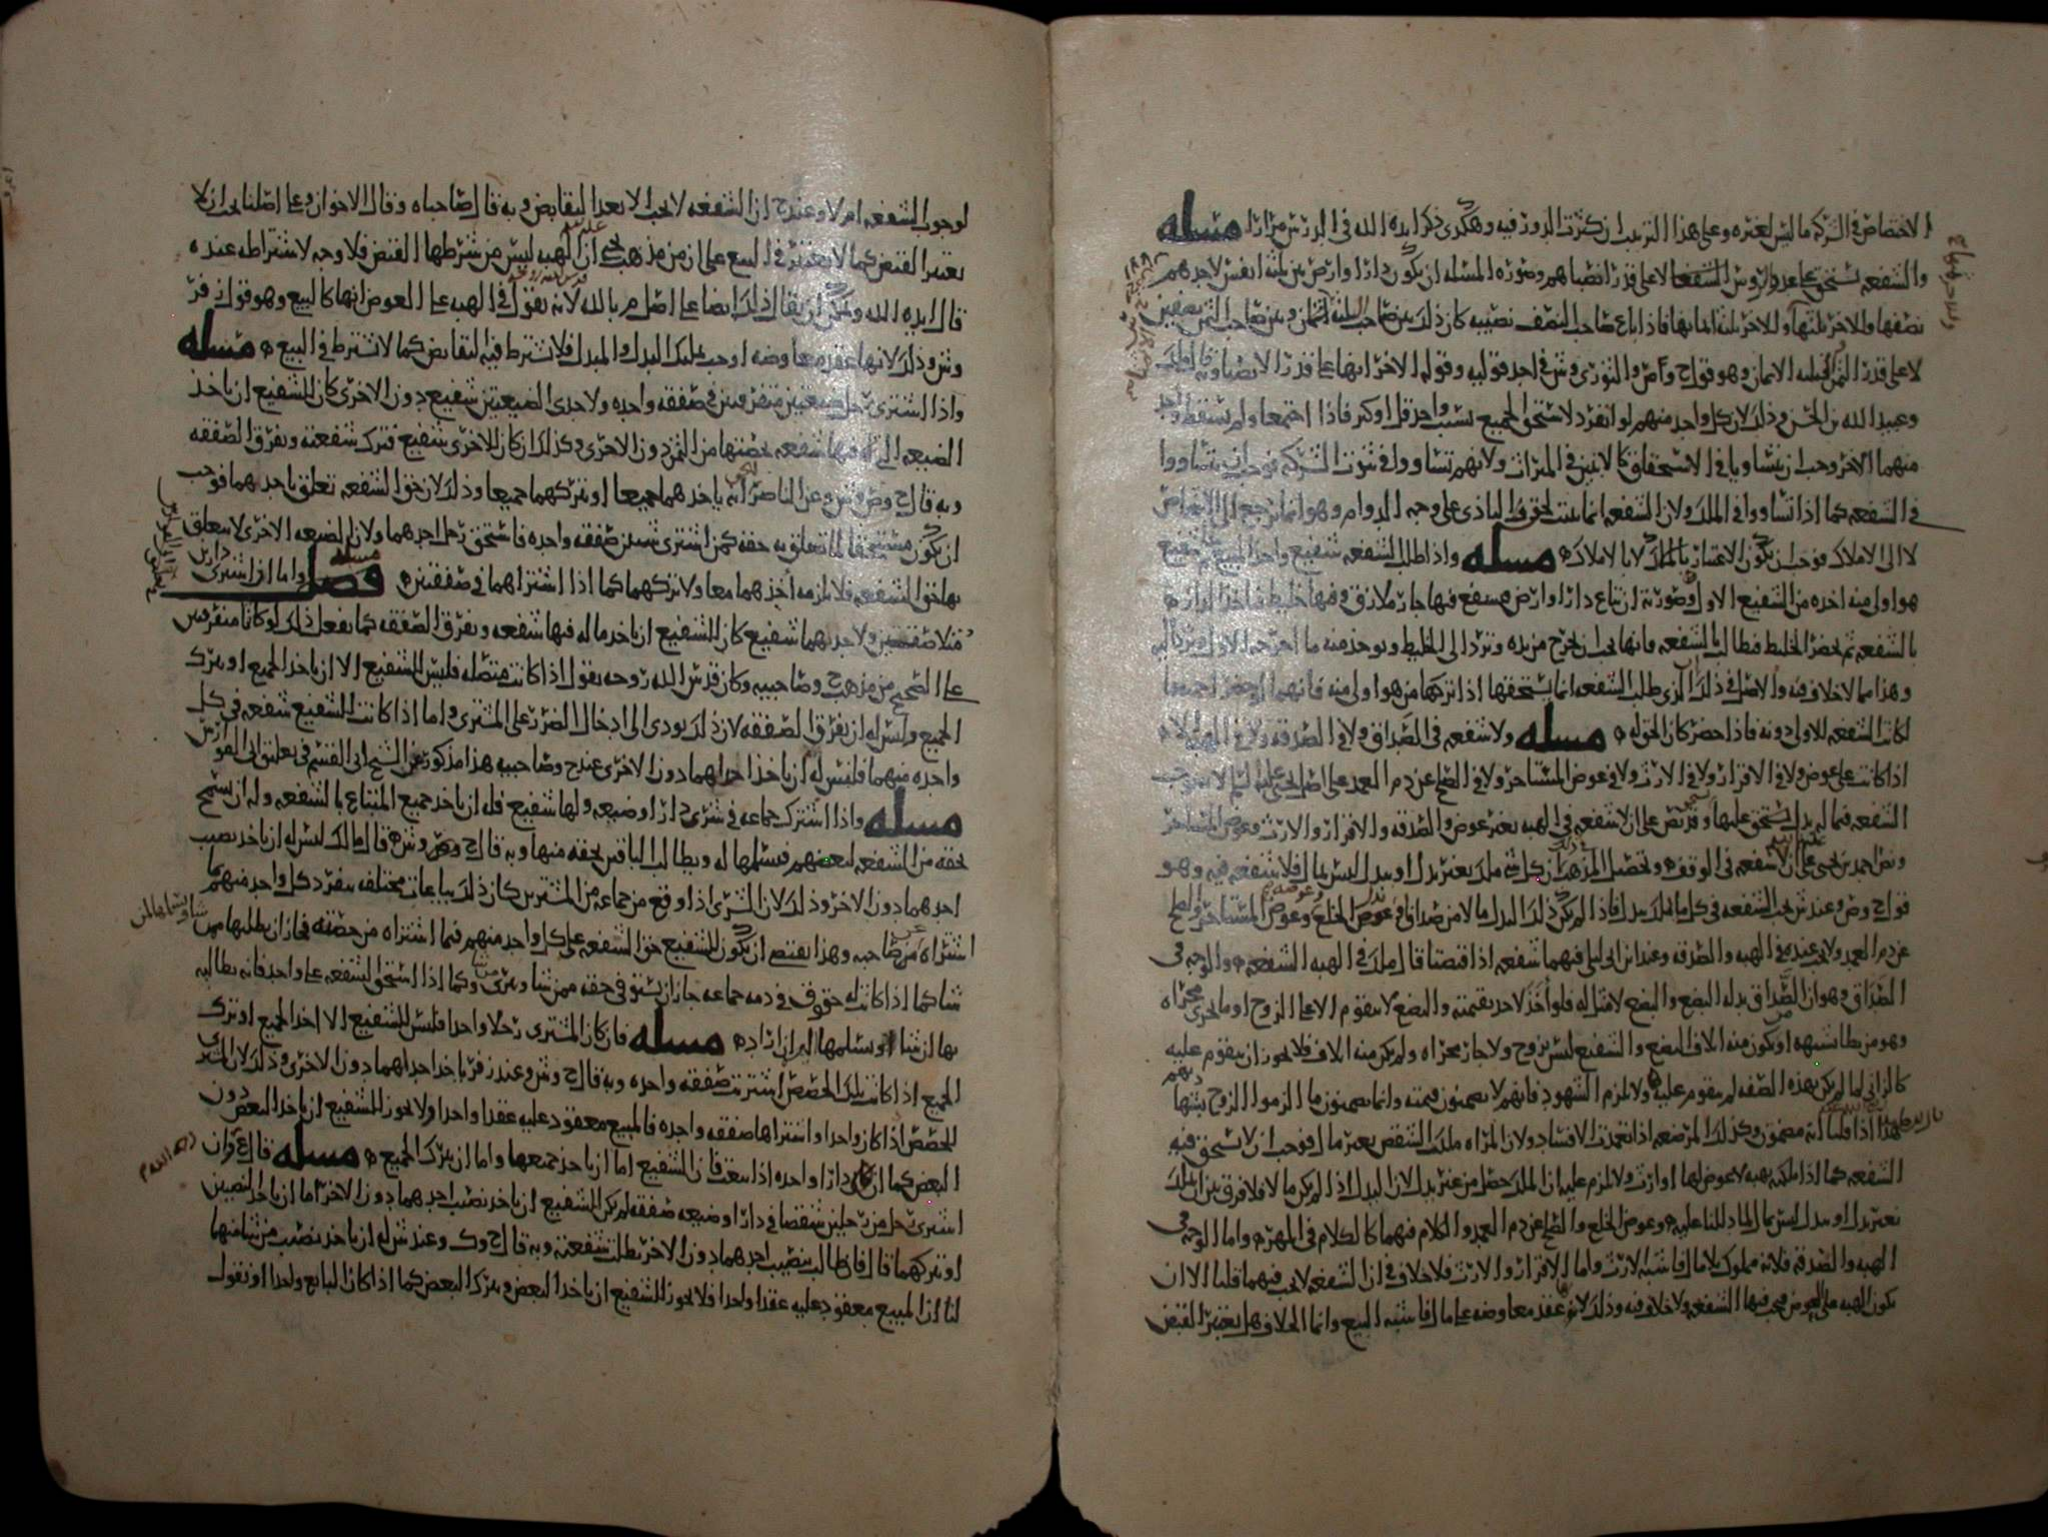 الاختصاص في الشركة ما ليس لغيره وعلى هذا الترتيب ان كثرت الدروز فيه وهكذى ذكر ايده الله في الدرس مرارا مسله
والشفعه تستحق على عدد روس الشفعا لا على قدر انصباهم وصوره المسله ان يكون دار او ارض بين ثلثه انفس لاحدهم
نصفها وللاخر ثلثها وللاخر ثلثه اثمانها فاذا باع صاحب النصف نصيبه كان ذلك بين صاحب الثلثه اثمان وبين صاحب الثمن نصفين
لا على قدر الثمن الاثمان وهو قول ح واص والثورى وش في احد قوليه وقوله الاخر انها على قدر الانصبا وبه قال ك
وعبيد الله بن الحسن وذلك لان كل واحد منهم لو انفرد لاستحق الجميع بسبب واحد قل او كثر فاذا اجتمعا ولم يسقط واحد
منهما الاخر وجب ان يتساويا في الاستحقاق كالابنين في الميراث ولانهم تساووا في ثبوت الشركه فوجب ان يتساووا
في الشفعه كما اذا تساووا في الملك ولان الشفعه انما تثبت لحق التاذى على وجه الدوام وهو انما يرجع الى الاشخاص
لا الى الاملاك فوجب ان يكون الاعتبار بالملاك لا بالاملاك مسله واذا طلب الشفعه شفيع واخذ المبيع ثم شفيع
هو اولى منه اخذه من الشفيع الاول وصورته ان تباع دار او ارض فيشفع فيها جار ملازق وفيها خليط فاخذ الدار
بالشفعه ثم يحضر الخليط فطالب بالشفعه فانها يجب ان تخرج من يده وترد الى الخليط ويوخذ منه ما اخرجه الاول ويرد اليه
وهذا مما لا خلاف فيه والاصل في ذلك ان الذى طلب الشفعه انما يستحقها اذا تركها من هو اولى منه
كانت الشفعه للاول دونه فاذا حضر كان الحق له مسله ولا شفعه في الصداق ولا في الصدقه ولا في الهبه الا
اذا كانت على عوض ولا في الاقرار ولا في الارث ولا في عوض المستاجر ولا في الصلح عن دم العمد على اصل يحيى عليه السلم لا تجب
الشفعه فيما له بدل يستحق عليها وقد نص على ان لا شفعه في الهبه بغير عوض والصدقه والاقرار والارث وعوض المستاجر
ونص احمد بن يحيى على ان لا شفعه في الوقف وتحصيل المذهب ان كل شي ملك بغير بدل او ببدل ليس بمال فلا شفعه فيه وهو
قول ح وص وعند ش تجب الشفعه في كل ما ملك ببدل فاذا لم يكن ذلك البدل مالا من صداق او عوض الخلع وعوض المستاجر والصلح
عن دم العمد ولا تجب عنده في الهبه والصدقه وعند ابن ابى ليلى فيهما شفعه اذا قبضتا قال ملك في الهبه الشفعه والوجه في
الصداق وهو ان الصداق بدله البضع والبضع لا مثل له فلو اخذ لاخذ بقيمته والبضع لا يتقوم الا على الزوج او ما يجرى مجراه
وهو من يطا بشبهه او يكون منه اتلاف البضع والشفيع ليس بزوج ولا جار مجراه ولم يكن منه اتلاف فلا يجوز ان يتقوم عليه
كالزانى لما لم يكن بهذه الصفه لم يتقوم عليه ولا يلزم الشهود فانهم لا يضمنون قيمته وانما يضمنون ما الزموا الزوج بشهادتهم
هذا اذا قلنا انه مضمون وكذلك المرضعه اذا تعمدت الافساد ولان المراه ملكت الشقص بغير مال فوجب ان لا تستحق فيه
الشفعه كما اذا ملكته بهبه لا عوض لها او ارث ولا يلزم عليه ان الملك حصل من غير بدل لان البدل اذا لم يكن مالا فلا فرق بين ان يملك
بغير بدل او ببدل ليس بمال لما دللنا عليه وعوض الخلع والصلح عن دم العمد والكلام فيهما كالكلام في المهر واما الوجه في
الهبه والصدقه فلانه مملوك بلا مال فاشبه الارث واما الاقرار والارث فلا خلاف في ان الشفعه لا تجب فيهما قلنا الا ان
تكون الهبه على العوض فتجب فيها الشفعه ولا خلاف فيه وذلك لانه عقد معاوضه على مال فاشبه البيع وانما الخلاف هل يعتبر القبض
لوجوب الشفعه ام لا وعند ح ان الشفعه لا تجب الا بعد التقابض وبه قال صاحباه وقال الاخوان وعلى اصلنا يجب ان لا
يعتبر القبض كما لا يعتبر في البيع على ان من مذهب يحيى ان الهبه ليس من شرطها القبض فلا وجه لاشتراطه عنده
قال ايده الله ويمكن ان يقال ذلك ايضا على اصل م بالله لانه يقول في الهبه على العوض انها كالبيع وهو قول ن فر
وش وذلك لانها عقد معاوضه اوجب تمليك البدل والمبدل فلا يشترط فيه التقابض كما لا يشترط في البيع مسله
واذا اشترى رجل ضيعتين متفرقتين في صفقه واحده ولاحدى الضيعتين شفيع دون الاخرى كان للشفيع ان ياخذ
الضيعه التى له فيها شفعه بحصتها من الثمن دون الاخرى وكذلك ان كان للاخرى شفيع فترك شفعته وتفرق الصفقه
وبه قال ح وص وش وعن الناصر انه ياخذهما جميعا او يتركهما جميعا وذلك لان حق الشفعه تعلق باحدهما فوجب
ان يكون مستحقا لما تعلق به حقه كمن اشترى شيئين صفقه واحده فاستحق رجل احدهما ولان الضيعه الاخرى لا يتعلق
بها حق الشفعه فلا يلزمه اخذهما معا ولا تركهما كما اذا اشتراهما في صفقتين فصل واما ان اشترى دارين
متلاصقتين ولاحدهما شفيع كان للشفيع ان ياخذ ما له فيها شفعه وتفرق الصفقه كما يفعل ذلك لو كانتا متفرقتين
على الصحيح من مذهب ح وصاحبيه وكان قدس الله روحه يقول اذا كانت متصله فليس للشفيع الا ان ياخذ الجميع او يترك
الجميع وليس له ان يفرق الصفقه لان ذلك يودى الى ادخال الضرر على المشترى واما اذا كانت للشفيع شفعه في كل
واحده منهما فليس له ان ياخذ احداهما دون الاخرى عند ح وصاحبيه هذا مذكور عن الشيخ ابى القسم في تعليق ابى الفوارس
مسله واذا اشترك جماعه في شرى دار او ضيعه ولها شفيع فله ان ياخذ جميع المبتاع بالشفعه وله ان يسمح
بحقه من الشفعه لبعضهم فيسلمها له ويطالب الباقين بحقه منها وبه قال ح وص وش وقال مالك ليس له ان ياخذ نصيب
احدهما دون الاخر وذلك لان الشرى اذا وقع من جماعه من المشترين كان ذلك بياعات مختلفه ينفرد كل واحد منهم بما
اشتراه من صاحبه وهذا يقتضى ان يكون للشفيع حق الشفعه على كل واحد منهم فيما اشتراه من حصته فجاز ان يطلبها ممن
شا كما اذا كانت له حقوق في ذمه جماعه جاز ان يستوفى حقه ممن شا ويبرى من شا وكما اذا استحق الشفعه على واحد فانه يطالبه
بها ان شا او يسلمها اليه ان اراد مسله فان كان المشترى رجلا واحدا فليس للشفيع الا اخذ الجميع او ترك
الجميع اذا كانت تلك الحصص اشتريت صفقه واحده وبه قال ح وش وعند زفر ياخذ احداهما دون الاخرى وذلك لان المشترى
للحصص اذا كان واحدا واشتراها صفقه واحده فالمبيع معقود عليه عقدا واحدا ولا يجوز للشفيع ان ياخذ البعض دون
البعض كما ان دارا واحده اذا بيعت فان الشفيع اما ان ياخذ جميعها واما ان يترك الجميع مسله قال ع فان
اشترى رجل من رجلين شقصا في دار او ضيعه صفقه لم يكن للشفيع ان ياخذ نصيب احدهما دون الاخر اما ان ياخذ النصيبين
او يتركهما قال فان طالب بنصيب احدهما دون الاخر بطلت شفعته وبه قال ح وك وعند ش له ان ياخذ نصيب من شا منهما
لنا ان المبيع معقود عليه عقدا واحدا فلا يجوز للشفيع ان ياخذ البعض ويترك البعض كما اذا كان البايع واحدا او نقول